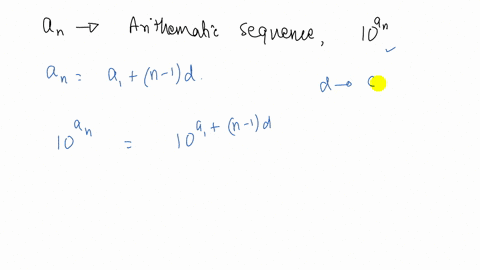 aₙ → Arithematic sequence, 10^aₙ
aₙ = a₁ + (n-1)d.
d →
10^aₙ = 10^a₁ + (n-1)d